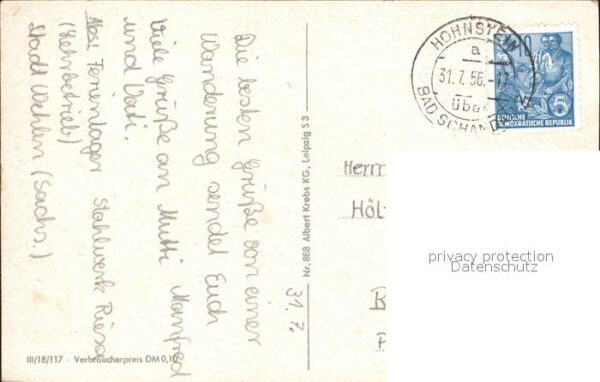 Die besten Grüße von einer
Wanderung sendet Euch
Viele Grüße an Mutti Manfred
und Vati.
Abs: Ferienlager Stahlwerk Riesa
(Lehrbetrieb)
Stadt Wehlen (Sachs.)
31.7.
III/18/117 · Verbraucherpreis DM 0,10
Nr. 868 Albert Krebs KG., Leipzig S 3
HOHNSTEIN
a
31.7.56.-17
über
BAD SCHAN
10
DEUTSCHE
DEMOKRATISCHE REPUBLIK
Herrn
privacy protection
Datenschutz